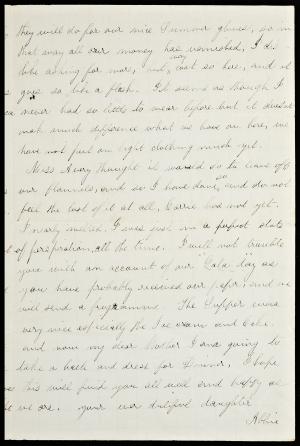 they will do for our nice Summer gloves, so in
that way all our money has vanished, I do
hate asking for more, but, cost so here, and it
goes so, like a flash. It seems as though I
never had so little to wear before but it doesn't
make much difference what we have on here, we
have not put on light clothing much yet.
Miss Avery thought it warm so to leave off
our flannels, and so I have done, so and do not
feel the lost of it at all, Carrie has not yet.
I nearly melted. I was just in a perfect state
of perspiration, all the time. I will not trouble
you with an account of our "Gala" day as
you have probably received our paper, and we
will send a programme. The Supper was
very nice especially the Ice cream and Cake.
and now my dear Mother I am going to
take a bath and dress for dinner, I hope
this will find you all well and happy as
we are. your ever dutiful daughter